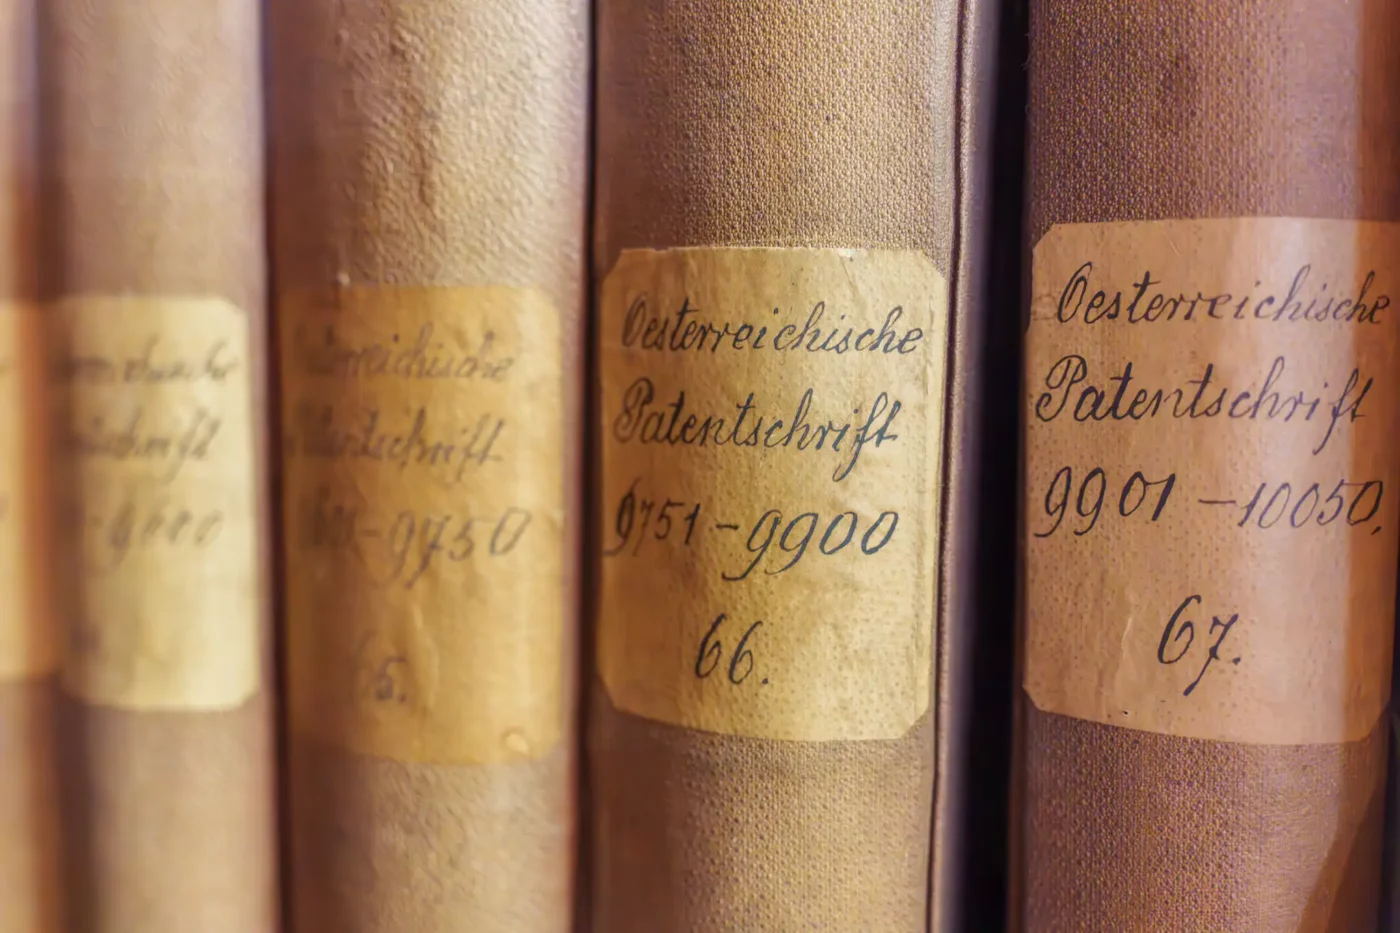 -9600
erreichische
entschrift
-9750
5.
Oesterreichische
Patentschrift
9751-9900
66.
Oesterreichische
Patentschrift
9901-10050.
67.